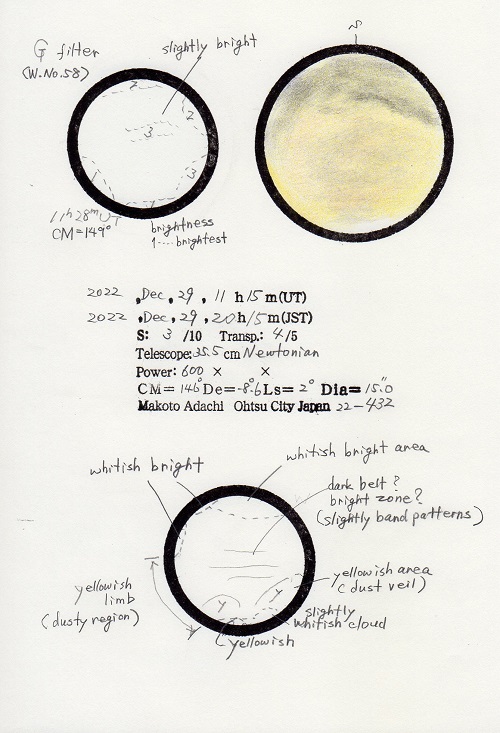 G filter
(W.No.58)
slightly bright
2
2
3
3
1
11h28mUT
CM=149°
brightness
1....brightest
2022 ,Dec, 29, 11 h 15 m(UT)
2022 ,Dec, 29, 20 h 15 m(JST)
S: 3 /10 Transp.: 4/5
Telescope: 35.5 cm Newtonian
Power: 600 × ×
CM= 146° De= -8.°6 Ls= 2° Dia= 15."0
Makoto Adachi Ohtsu City Japan 22-432
whitish bright
whitish bright area
dark belt?
bright zone?
(slightly band patterns)
yellowish area
(dust veil)
yellowish
limb
(dusty region)
Y
Y
slightly
whitish cloud
yellowish